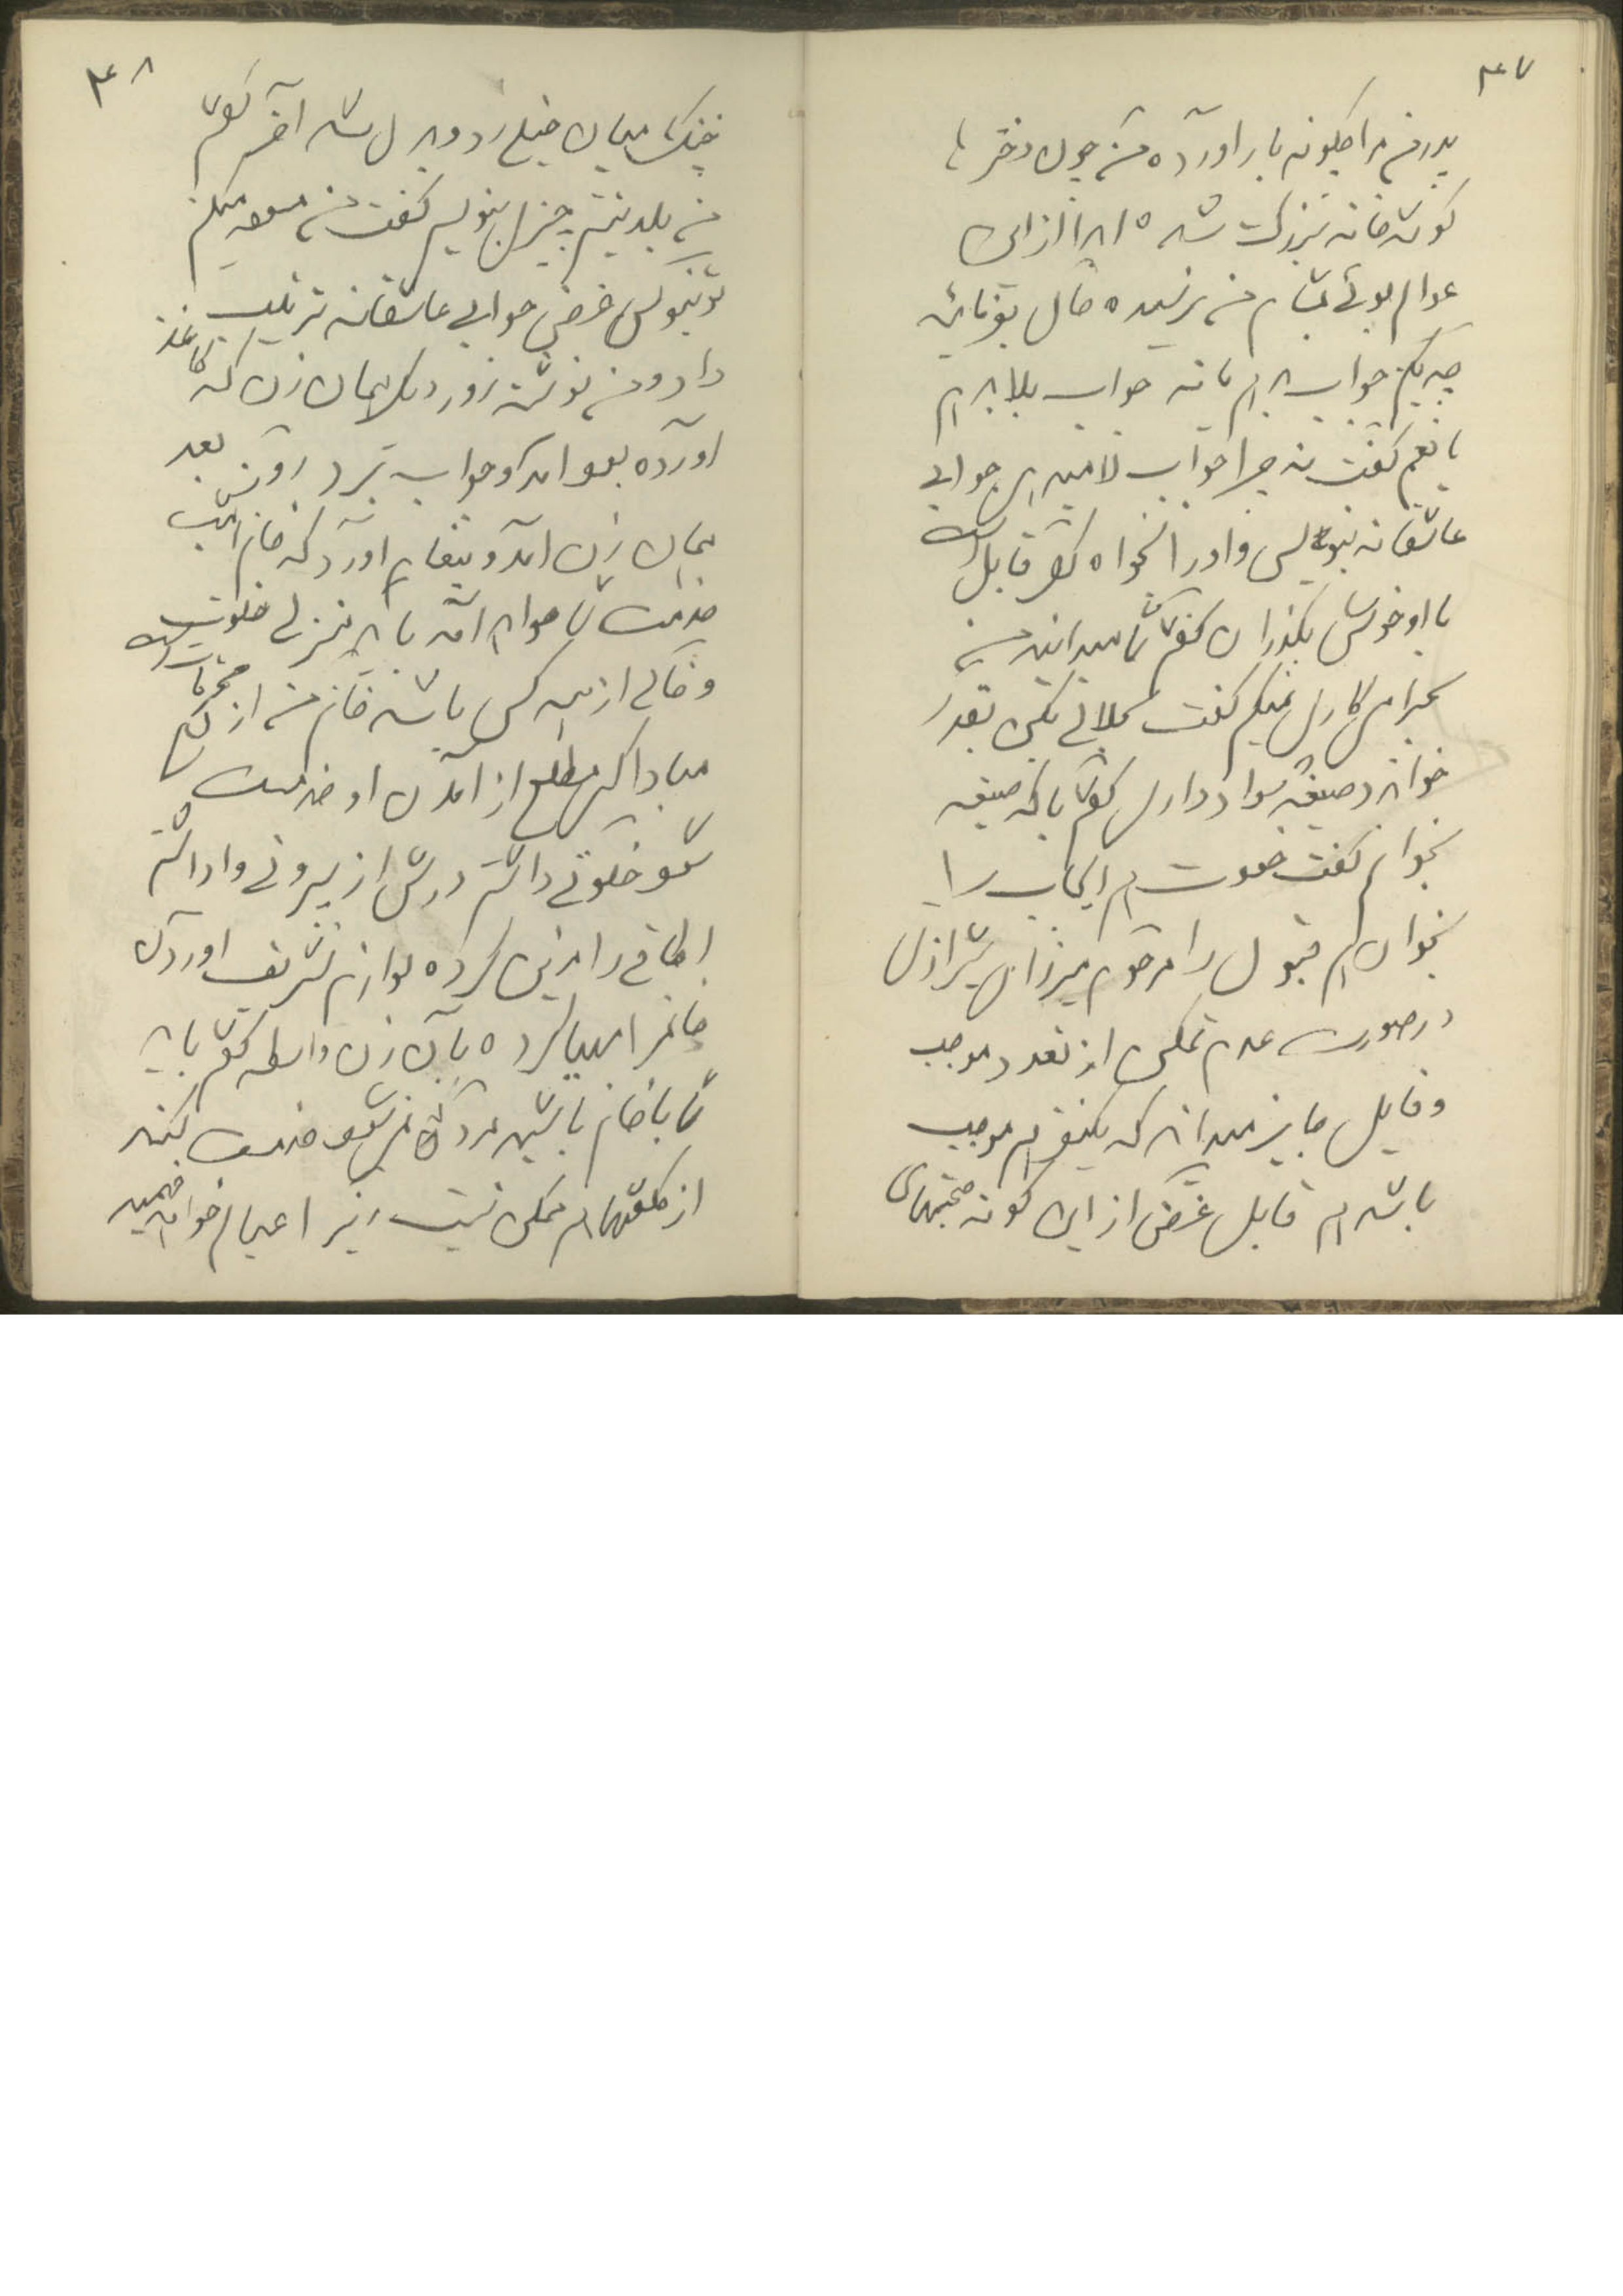 ۴۷
پدر من مرا چگونه بار آورده من چون دختر با
گوشه خانه بزرگ شده ابدا از این
عوالم بوئی بمشام من نرسیده حال بفرمائید
چه بکنم جواب بدهم یا نه جواب بلا بدهم
یا نعم گفت نه چرا جواب لا میدهی جوابی
عاشقانه بنویس و او را بخواه اگر قابل است
با او خوش بگذران گفتم شما میدانید من
بحرام کاری نمیکنم گفت حلالی بکن بقدر
خواندن صیغه سواد داری گفتم باکه صیغه
بخوانم گفت خودت هم ایجاب را
بخوان هم قبول را مرحوم میرزای شیرازی
در صورت عدم تمکن از تعدد موجب
و قابل جایز میداند که یکنفر هم موجب
باشد هم قابل غرض از این گونه صحبتهای
۴۸
خنک میان خیلی رد و بدل شد آخر گفتم
من بلد نیستم چیزی بنویسم گفت من مسوده میکنم
تو بنویس غرض جوابی عاشقانه ترتیب
داد و من نوشته روز دیگر همان زن که کاغذ
آورده بود آمد و جواب برد روز بعد
همان زن آمد و پیغام آورد که خانم امشب
خدمت شما خواهد آمد باید منزلی خلوت
و خالی از همه کس باشد خانم من از محترمات است
مبادا کسی مطلع از آمدن او خدمت
شود خلوتی داشتم درش از بیرونی وا داشتم
اطاقی را مزین کرده لوازم تشریف آوردن
خانم را مهیا کرده بآن زن واسطه گفتم باید
شما با خانم باشید مرد که نمیشود خدمت بکند
از کلفتها هم ممکن نیست زیرا عیالم خواهد فهمید